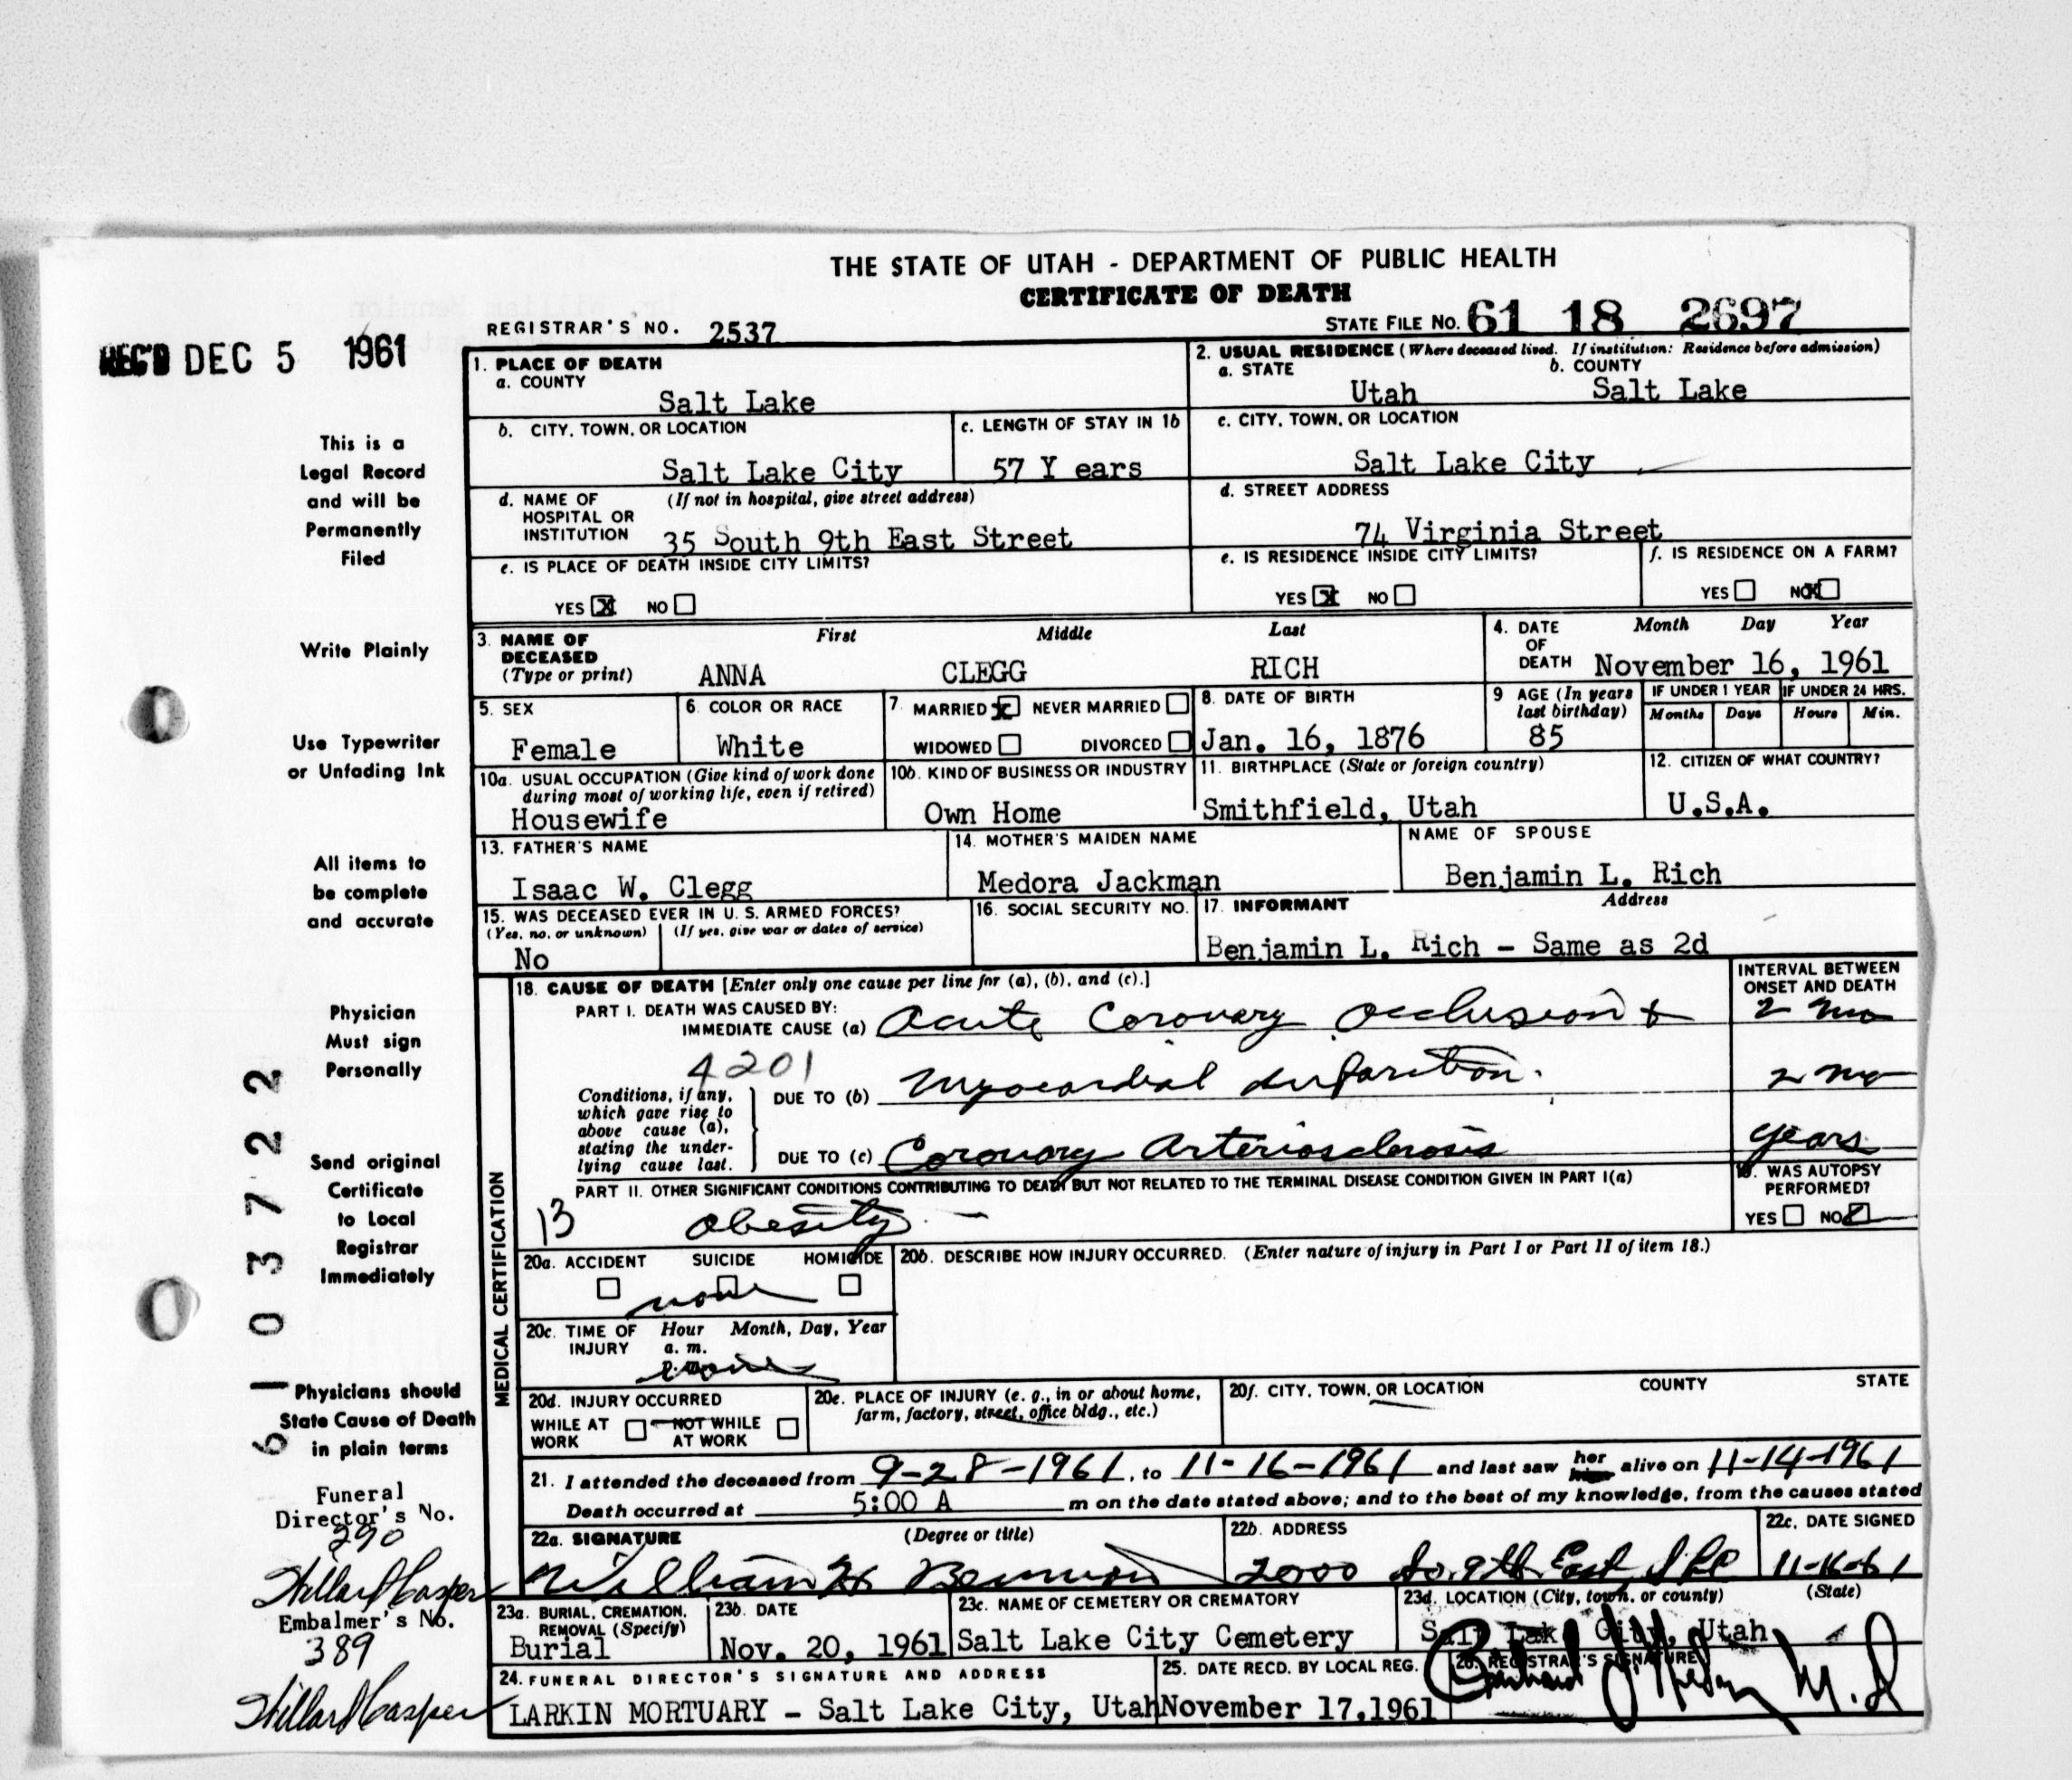 THE STATE OF UTAH - DEPARTMENT OF PUBLIC HEALTH
CERTIFICATE OF DEATH
REGISTRAR'S NO. 2537
STATE FILE NO. 61 18 2697
REC'D DEC 5 1961
1. PLACE OF DEATH
a. COUNTY
Salt Lake
2. USUAL RESIDENCE (Where deceased lived. If institution: Residence before admission)
a. STATE b. COUNTY
Utah Salt Lake
b. CITY, TOWN, OR LOCATION
Salt Lake City
c. LENGTH OF STAY IN 1b
57 Y ears
c. CITY, TOWN, OR LOCATION
Salt Lake City
d. NAME OF (If not in hospital, give street address)
HOSPITAL OR
INSTITUTION 35 South 9th East Street
d. STREET ADDRESS
74 Virginia Street
e. IS PLACE OF DEATH INSIDE CITY LIMITS?
YES X NO
e. IS RESIDENCE INSIDE CITY LIMITS?
YES X NO
f. IS RESIDENCE ON A FARM?
YES NO X
3. NAME OF First Middle Last
DECEASED
(Type or print) ANNA CLEGG RICH
4. DATE Month Day Year
OF
DEATH November 16, 1961
5. SEX
Female
6. COLOR OR RACE
White
7. MARRIED X NEVER MARRIED
WIDOWED DIVORCED
8. DATE OF BIRTH
Jan. 16, 1876
9 AGE (In years
last birthday)
85
IF UNDER 1 YEAR IF UNDER 24 HRS.
Months Days Hours Min.
10a. USUAL OCCUPATION (Give kind of work done
during most of working life, even if retired)
Housewife
10b. KIND OF BUSINESS OR INDUSTRY
Own Home
11. BIRTHPLACE (State or foreign country)
Smithfield, Utah
12. CITIZEN OF WHAT COUNTRY?
U.S.A.
13. FATHER'S NAME
Isaac W. Clegg
14. MOTHER'S MAIDEN NAME
Medora Jackman
NAME OF SPOUSE
Benjamin L. Rich
15. WAS DECEASED EVER IN U. S. ARMED FORCES?
(Yes, no, or unknown) (If yes, give war or dates of service)
No
16. SOCIAL SECURITY NO.
17. INFORMANT Address
Benjamin L. Rich - Same as 2d
18. CAUSE OF DEATH [Enter only one cause per line for (a), (b), and (c).]
INTERVAL BETWEEN
ONSET AND DEATH
PART I. DEATH WAS CAUSED BY:
IMMEDIATE CAUSE (a) Acute Coronary Occlusion & 2 mo
4201
Conditions, if any,
which gave rise to
above cause (a),
stating the under-
lying cause last.
DUE TO (b) Myocardial infarction. 2 mo
DUE TO (c) Coronary Arteriosclerosis years
PART II. OTHER SIGNIFICANT CONDITIONS CONTRIBUTING TO DEATH BUT NOT RELATED TO THE TERMINAL DISEASE CONDITION GIVEN IN PART I(a)
13 obesity -
19. WAS AUTOPSY
PERFORMED?
YES NO
MEDICAL CERTIFICATION
20a. ACCIDENT SUICIDE HOMICIDE
none
20b. DESCRIBE HOW INJURY OCCURRED. (Enter nature of injury in Part I or Part II of item 18.)
20c. TIME OF Hour Month, Day, Year
INJURY a. m.
none
20d. INJURY OCCURRED
WHILE AT NOT WHILE
WORK AT WORK
20e. PLACE OF INJURY (e. g., in or about home,
farm, factory, street, office bldg., etc.)
20f. CITY, TOWN, OR LOCATION COUNTY STATE
21. I attended the deceased from 9-28-1961, to 11-16-1961 and last saw her him alive on 11-14-1961
Death occurred at 5:00 A m on the date stated above; and to the best of my knowledge, from the causes stated
22a. SIGNATURE (Degree or title)
William H Bennion
22b. ADDRESS
2000 So. 9th East SLC
22c. DATE SIGNED
11-16-61
23a. BURIAL, CREMATION,
REMOVAL (Specify)
Burial
23b. DATE
Nov. 20, 1961
23c. NAME OF CEMETERY OR CREMATORY
Salt Lake City Cemetery
23d. LOCATION (City, town, or county) (State)
Salt Lake City, Utah
24. FUNERAL DIRECTOR'S SIGNATURE AND ADDRESS
LARKIN MORTUARY - Salt Lake City, Utah
25. DATE RECD. BY LOCAL REG.
November 17, 1961
26. REGISTRAR'S SIGNATURE
M.D
This is a
Legal Record
and will be
Permanently
Filed
Write Plainly
Use Typewriter
or Unfading Ink
All items to
be complete
and accurate
Physician
Must sign
Personally
Send original
Certificate
to Local
Registrar
Immediately
Physicians should
State Cause of Death
in plain terms
61 03722
Funeral
Director's No.
290
Hillard Casper
Embalmer's No.
389
Hillard Casper